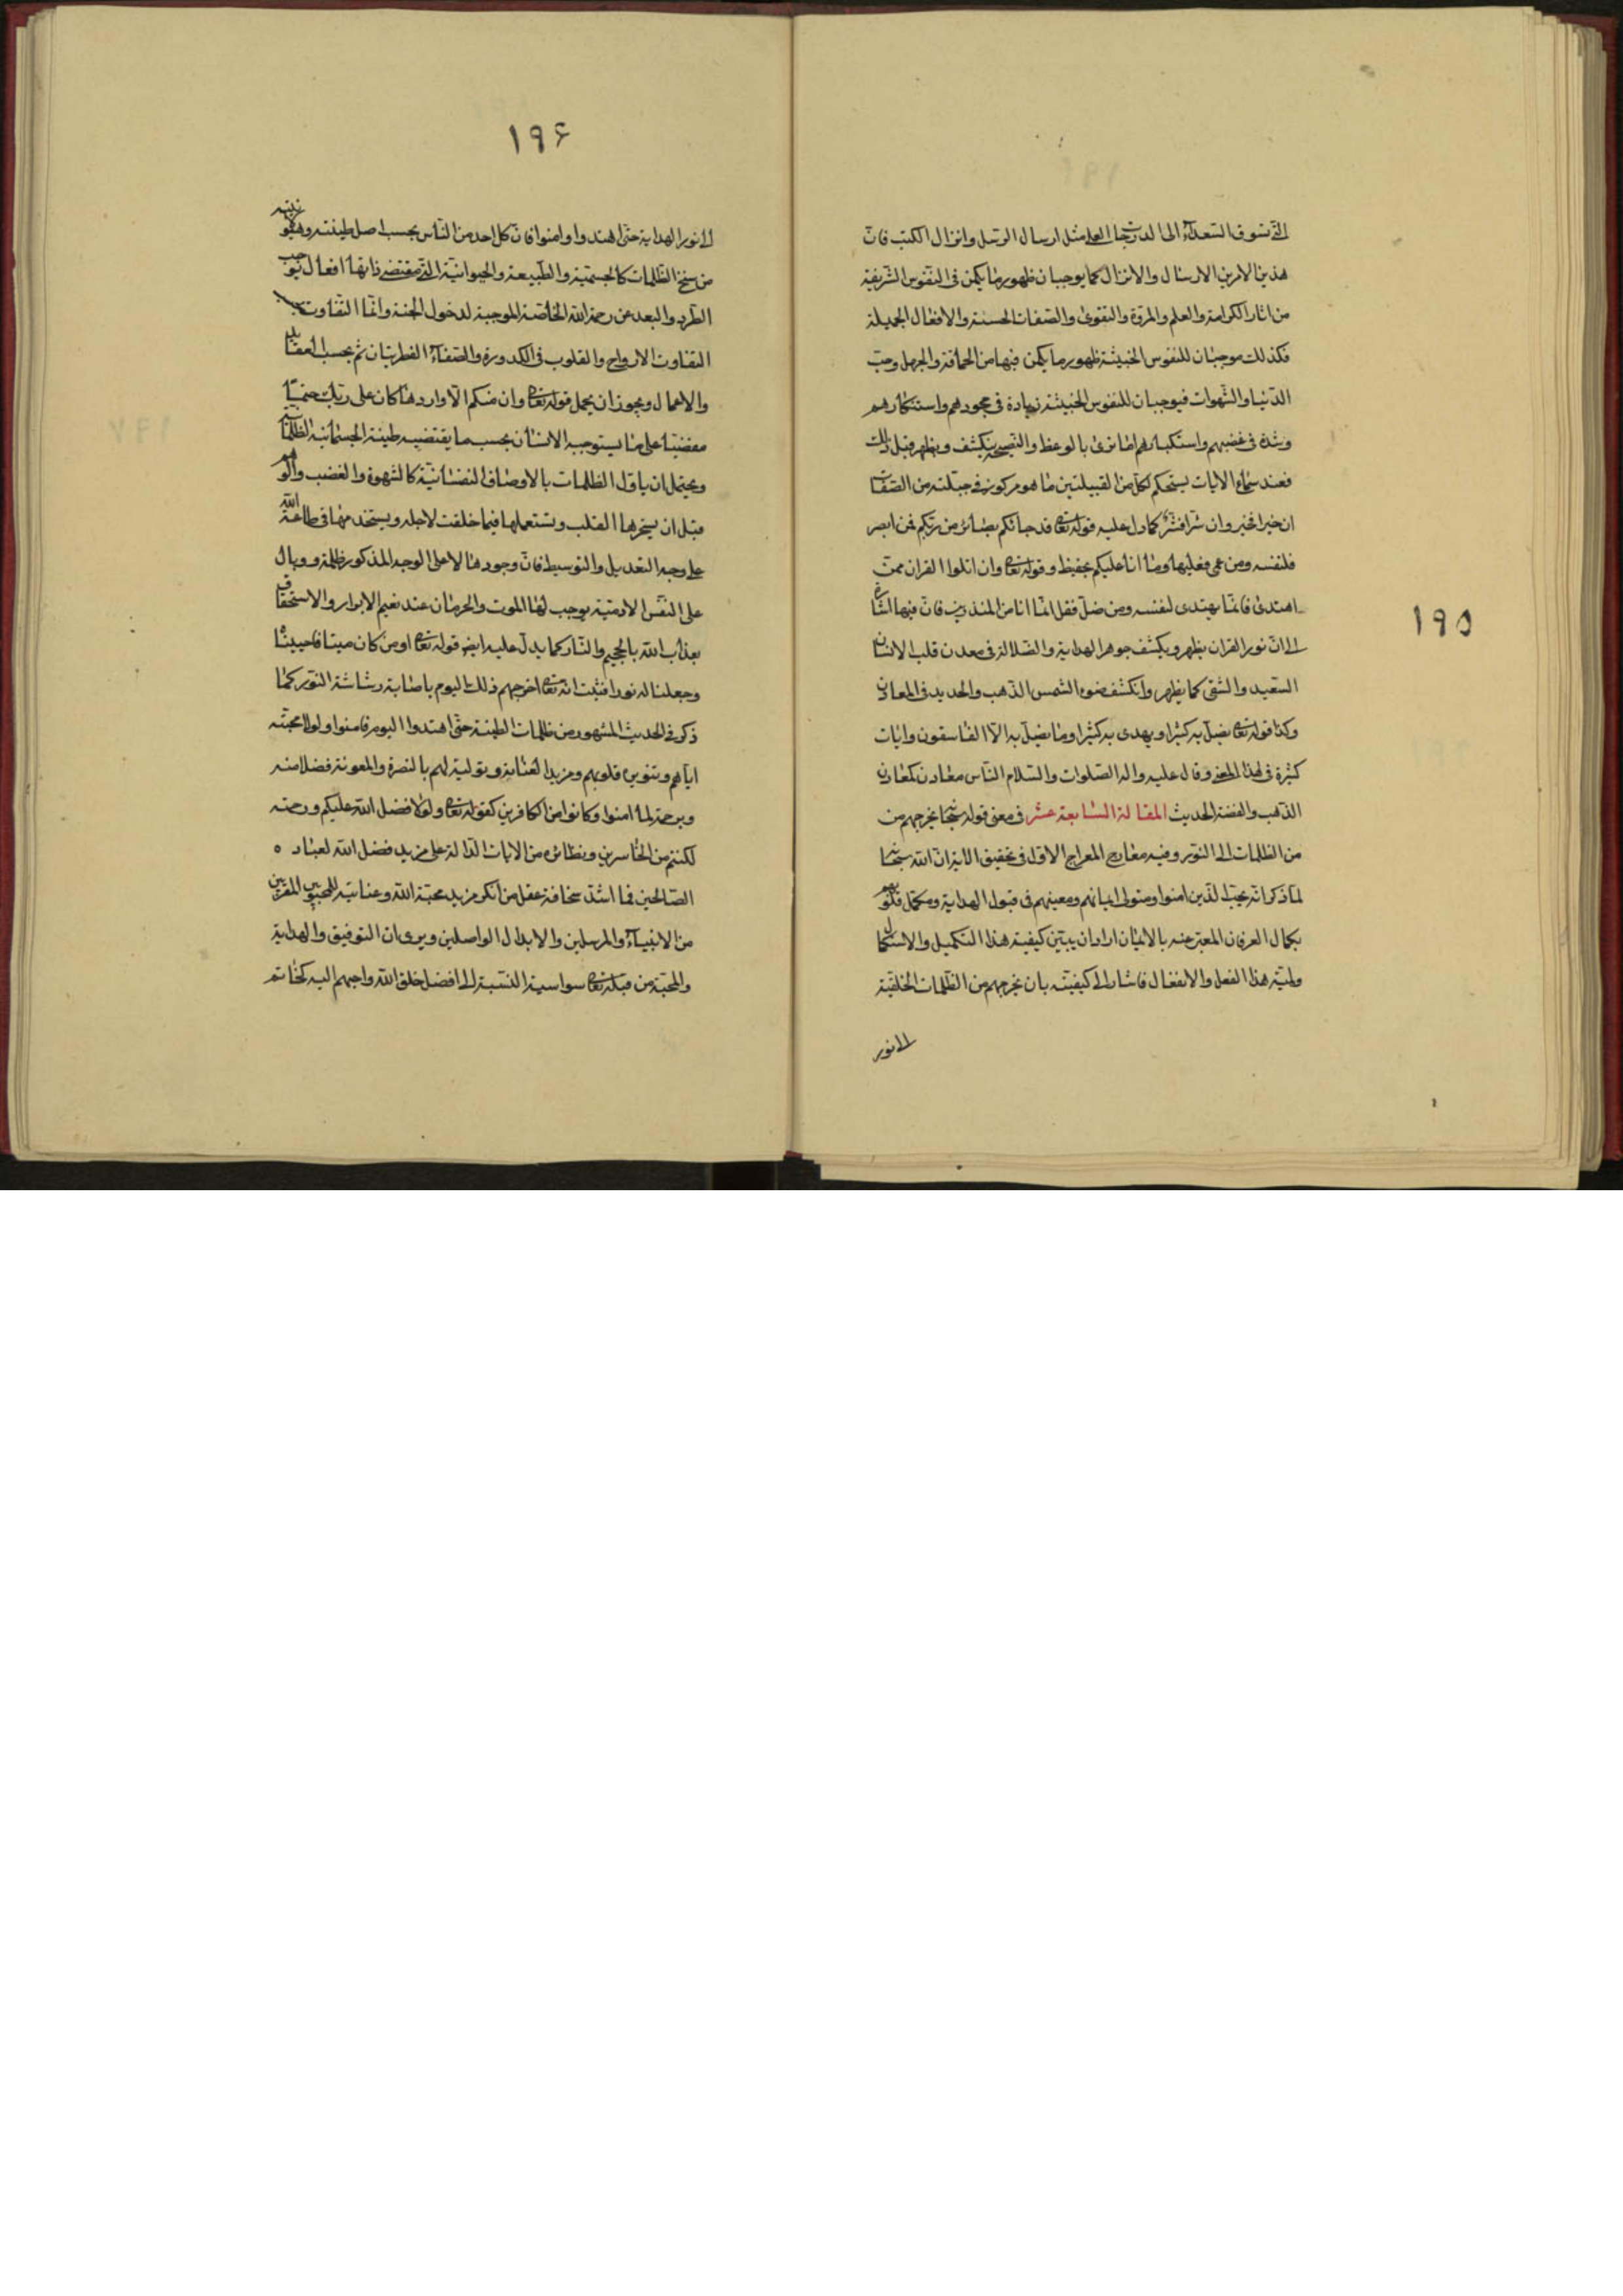 ۱۹۵
التی تسوق السعدآء الی الدرجات العلی مثل ارسال الرسل وانزال الکتب فان
هذین الامرین الارسال والانزال کما یوجبان ظهور ما یکمن فی النفوس الشریفة
من اثار الکرامة والعلم والمروة والتقوی والصفات الحسنة والافعال الجمیلة
فکذلک موجبان للنفوس الخبیثة ظهور ما یکمن فیها من الحماقة والجهل وحب
الدنیا والشهوات فیوجبان للنفوس الخبیثة زیادة فی جحودهم واستنکارهم
وشدة فی غضبهم واستکبارهم اما تری بالوعظ والنصیحة ینکشف ویظهر قبل ذلک
فعند سماع الایات یستحکم لکل من القبیلتین ما هو مرکوز فی جبلته من الصفات
ان خیرا فخیر وان شرا فشر کما دل علیه قوله تعالی قد جائکم بصائر من ربکم فمن ابصر
فلنفسه ومن عمی فعلیها وما انا علیکم بحفیظ وقوله تعالی وان اتلوا القران فمن
اهتدی فانما یهتدی لنفسه ومن ضل فقل انما انا من المنذرین فان فیها اشارة
الی ان نور القران یظهر ویکشف جوهر الهدایة والضلالة فی معدن قلب الانسان
السعید والشقی کما یظهر وانکشف ضوء الشمس الذهب والحدید فی المعادن
وکذا قوله تعالی یضل به کثیرا ویهدی به کثیرا وما یضل به الا الفاسقون وایات
کثیرة فی هذا المعنی وقال علیه واله الصلوات والسلام الناس معادن کمعادن
الذهب والفضة الحدیث المقالة السابعة عشر فی معنی قوله سبحانه یخرجهم من
من الظلمات الی النور وفیه معارج المعراج الاول فی تحقیق الایة ان الله سبحانه
لما ذکر انه یحب الذین امنوا ومتولی ایمانهم ومعینهم فی قبول الهدایة ومکمل قلوبهم
بکمال العرفان المعبر عنه بالایمان اراد ان یبین کیفیة هذا التکمیل والاستکمال
ولمیة هذا الفعل والانفعال فاشار الی کیفیته بان یخرجهم من الظلمات الخلقیة
الی نور
۱۹۶
الی نور الهدایة حتی اهتدوا وامنوا فان کل احد من الناس بحسب اصل طینته وهیو
من سنخ الظلمات کالجسمیة والطبیعة والحیوانیة التی مقتضی ذاتها افعال توجب
الطرد والبعد عن رحمة الله الخاصة الموجبة لدخول الجنة وانما التفاوت
التفاوت الارواح والقلوب فی الکدورة والصفآء الفطریتان ثم بحسب العقاید
والاعمال ویجوز ان یحمل قوله تعالی وان منکم الا واردها کان علی ربک حتما
مقضیا علی ما یستوجبه الانسان بحسب ما یقتضیه طینة الجسمانیة الظلمانیة
ویحتمل ان یاول الظلمات بالاوصاف النفسانیة کالشهوة والغضب والوهم
قبل ان یسخرها القلب ویستعملها فیما خلقت لاجله ویستخدمها فی طاعة الله
علی وجه التعدیل والتوسیط فان وجودها لا علی الوجه المذکور ظلمة ووبال
علی النفس الادمیة یوجب لها الموت والحرمان عند نعیم الابرار والاستحقاق
بعذاب الله بالجحیم والنار کما یدل علیه ایضا قوله تعالی اومن کان میتا فاحییناه
وجعلنا له نورا فثبت انه تعالی اخرجهم ذلک الیوم باصابة رشاشة النور کما
ذکر فی الحدیث المشهور من ظلمات الطینة حتی اهتدوا الیوم فامنوا ولولا محبته
ایاهم وتنویر قلوبهم ومزید العنایة وتولیة لهم بالنصرة والمعونة فضلا منه
ورحمة لما امنوا وکانوا من الکافرین کقوله تعالی ولولا فضل الله علیکم ورحمته
لکنتم من الخاسرین ونظائره من الایات الدالة علی مزید فضل الله لعباده
الصالحین فما اشد سخافة عقل من انکر مزید محبة الله وعنایته للمحبوبین المقربین
من الانبیآء والمرسلین والابدال الواصلین ویری ان التوفیق والهدایة
والمحبة من قبله تعالی سواسیة النسبة الی افضل خلق الله واحبهم الیه کخاتم